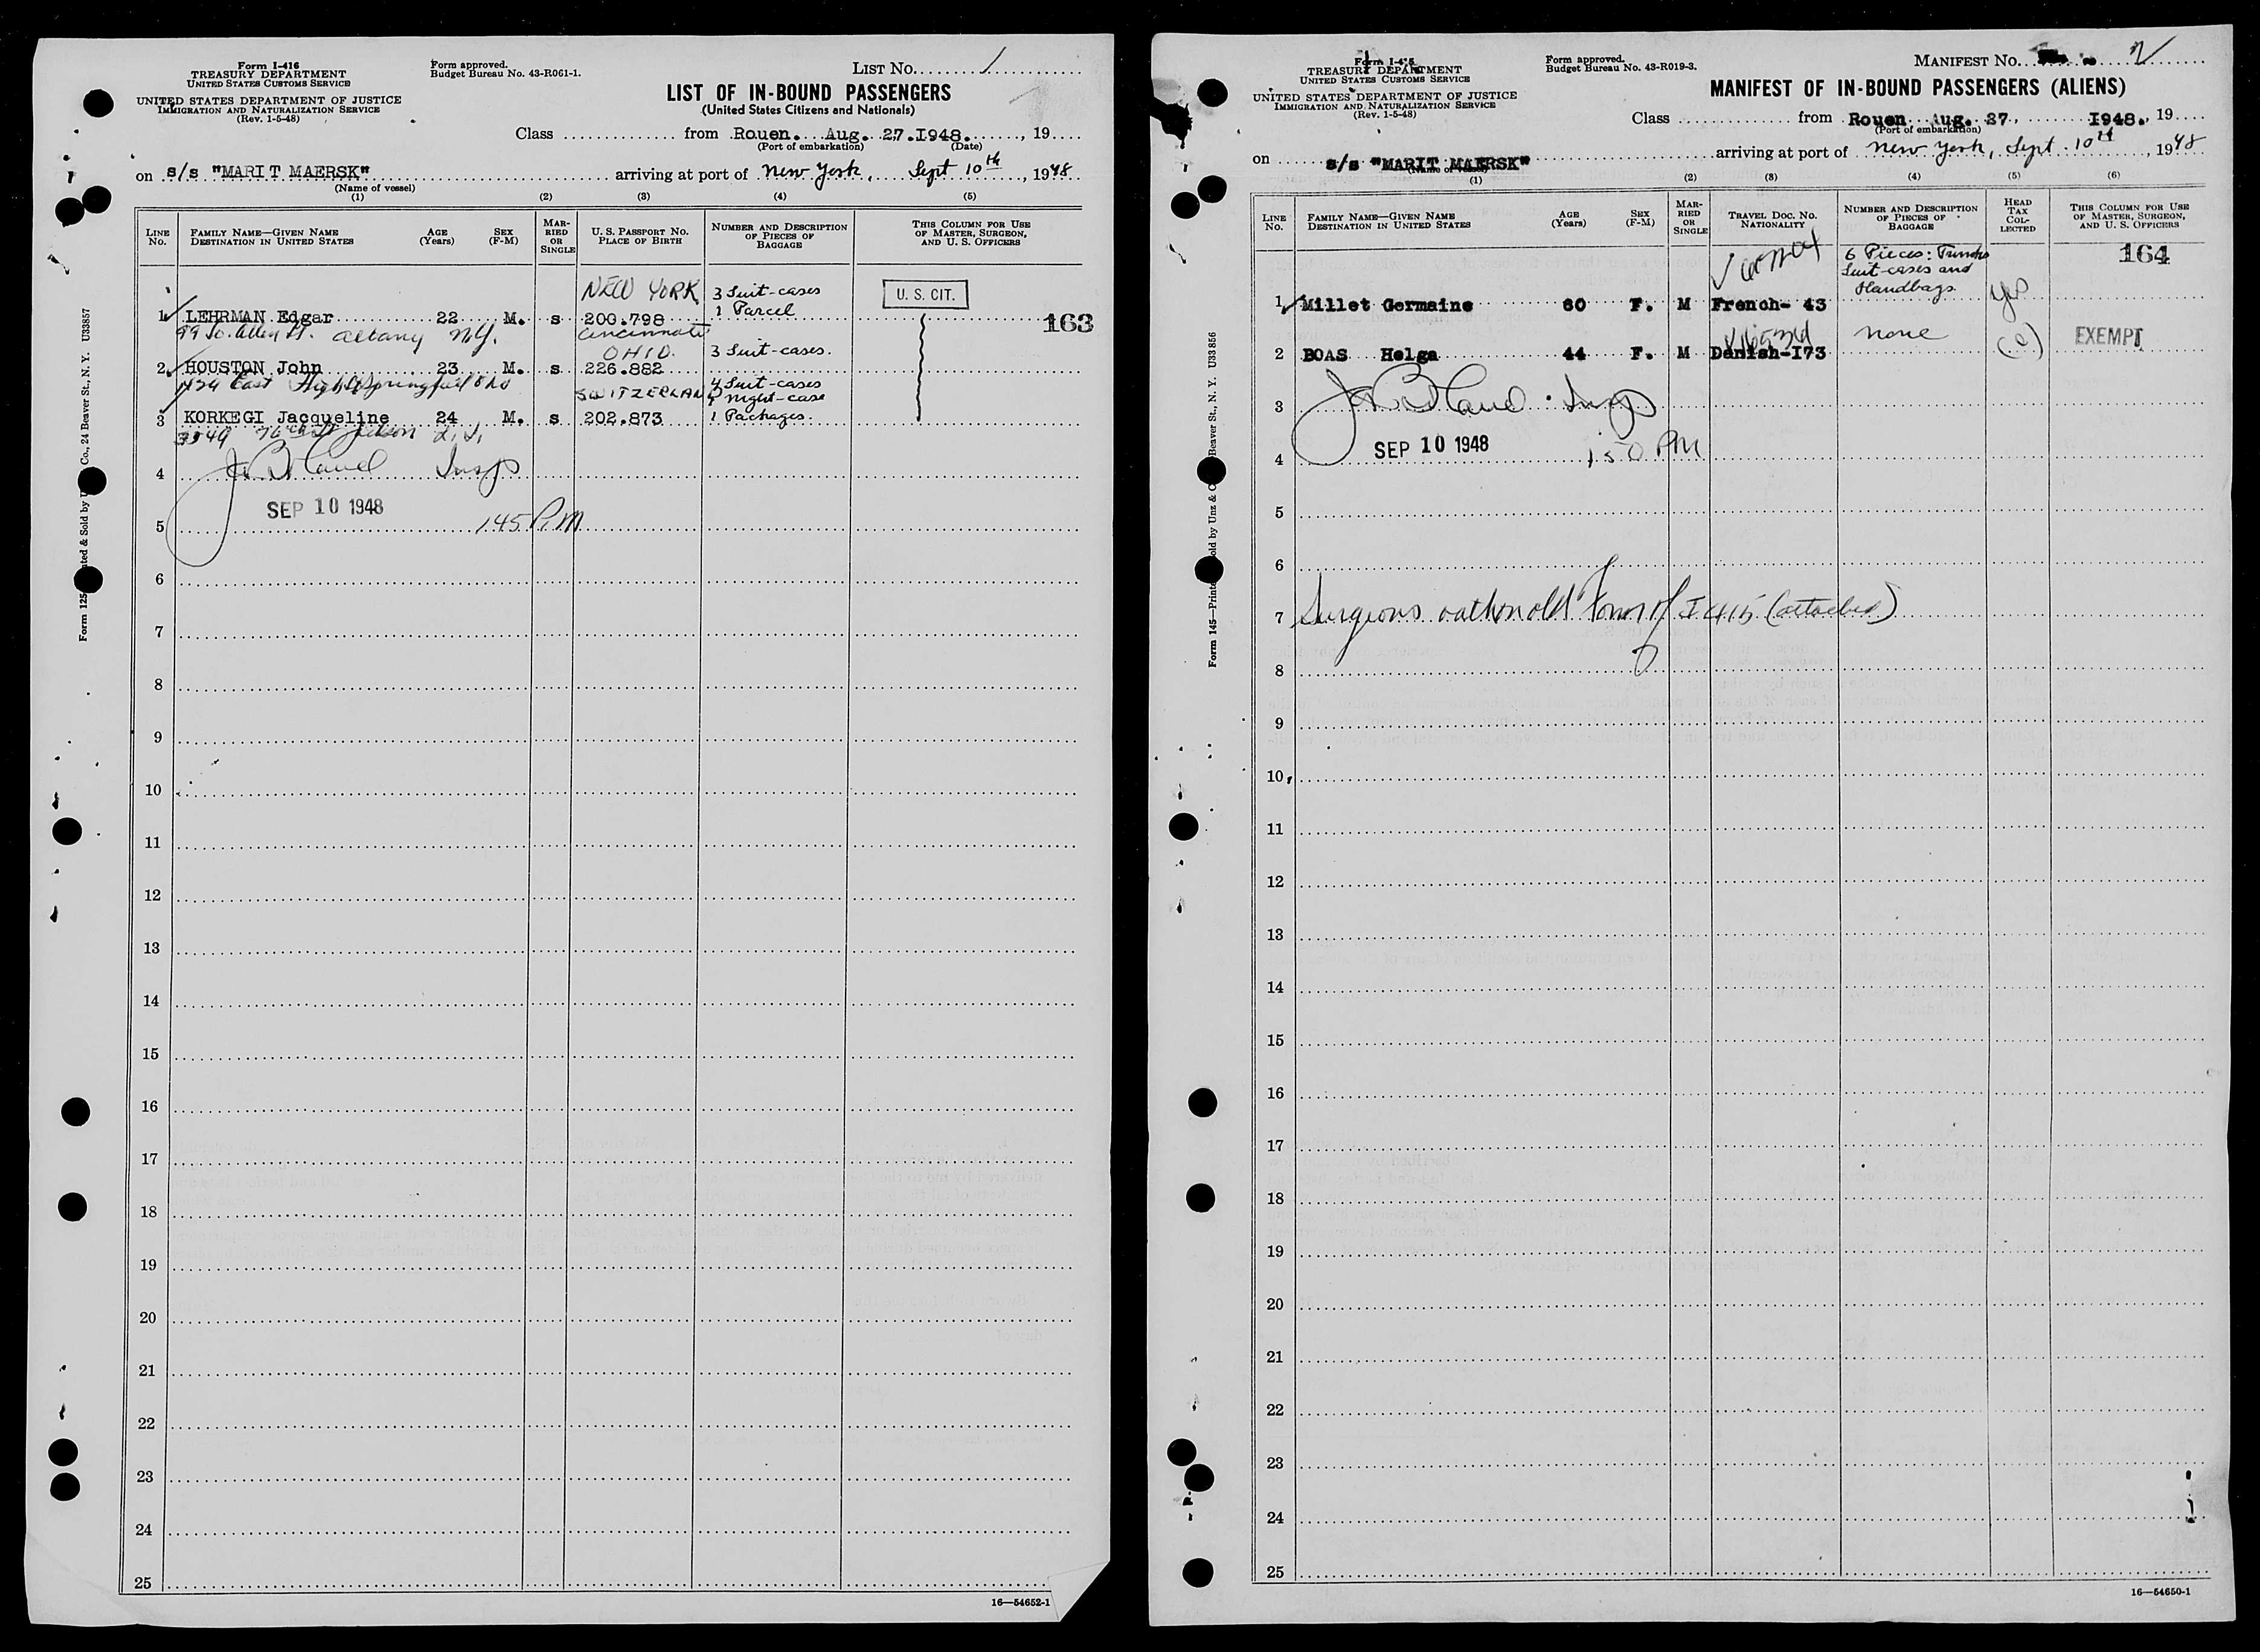 Form I-416
TREASURY DEPARTMENT
UNITED STATES CUSTOMS SERVICE
UNITED STATES DEPARTMENT OF JUSTICE
IMMIGRATION AND NATURALIZATION SERVICE
(Rev. 1-5-48)
Form approved.
Budget Bureau No. 43-R061-1.
LIST NO. 1
LIST OF IN-BOUND PASSENGERS
(United States Citizens and Nationals)
Class from Rouen. Aug. 27.I948. , 19
(Port of embarkation) (Date)
on s/s "MARIT MAERSK" arriving at port of New York, Sept 10th, 1948
(Name of vessel)
(1) (2) (3) (4) (5)
LINE No. FAMILY NAME—GIVEN NAME DESTINATION IN UNITED STATES AGE (Years) SEX (F-M) MARRIED OR SINGLE U. S. PASSPORT NO. PLACE OF BIRTH NUMBER AND DESCRIPTION OF PIECES OF BAGGAGE THIS COLUMN FOR USE OF MASTER, SURGEON, AND U. S. OFFICERS
NEW YORK 3 Suit-cases U. S. CIT.
1 LEHRMAN Edgar 22 M. s 200.798 1 Parcel 163
99 So. Allen St. Albany N.Y. Cincinnati
OHIO. 3 Suit-cases.
2 HOUSTON John 23 M. s 226.882
East High Springfield Ohio SWITZERLAND 4 Suit-cases
night-case
3 KORKEGI Jacqueline 24 M. s 202.873 1 Packages.
76th St Jackson L.I.
4 Insp
SEP 10 1948
5 145 P.M
6
7
8
9
10
11
12
13
14
15
16
17
18
19
20
21
22
23
24
25
16—54652-1
Co., 24 Beaver St., N. Y. U33857
Form 125 nted & Sold by U
TREASURY DEPARTMENT
UNITED STATES CUSTOMS SERVICE
UNITED STATES DEPARTMENT OF JUSTICE
IMMIGRATION AND NATURALIZATION SERVICE
(Rev. 1-5-48)
Form approved.
Budget Bureau No. 43-R019-3.
MANIFEST NO. 2
MANIFEST OF IN-BOUND PASSENGERS (ALIENS)
Class from Rouen Aug. 27, I948. , 19
(Port of embarkation)
on s/s "MARIT MAERSK" arriving at port of New York, Sept. 10th, 1948
(Name of vessel)
(1) (2) (3) (4) (5) (6)
LINE No. FAMILY NAME—GIVEN NAME DESTINATION IN UNITED STATES AGE (Years) SEX (F-M) MARRIED OR SINGLE TRAVEL DOC. NO. NATIONALITY NUMBER AND DESCRIPTION OF PIECES OF BAGGAGE HEAD TAX COLLECTED THIS COLUMN FOR USE OF MASTER, SURGEON, AND U. S. OFFICERS
6 Pieces: Trunks 164
Suit-cases and
Handbags
1 Millet Germaine 60 F. M French- 43 yes
none EXEMPT
2 BOAS Helga 44 F. M Danish-I73
3 Insp
SEP 10 1948
4 150 PM
5
6
7 Surgeons oath on old form of I 415 (attached)
8
9
10
11
12
13
14
15
16
17
18
19
20
21
22
23
24
25
16—54650-1
Form 145—Printe old by Unz & C Beaver St., N. Y. U33856